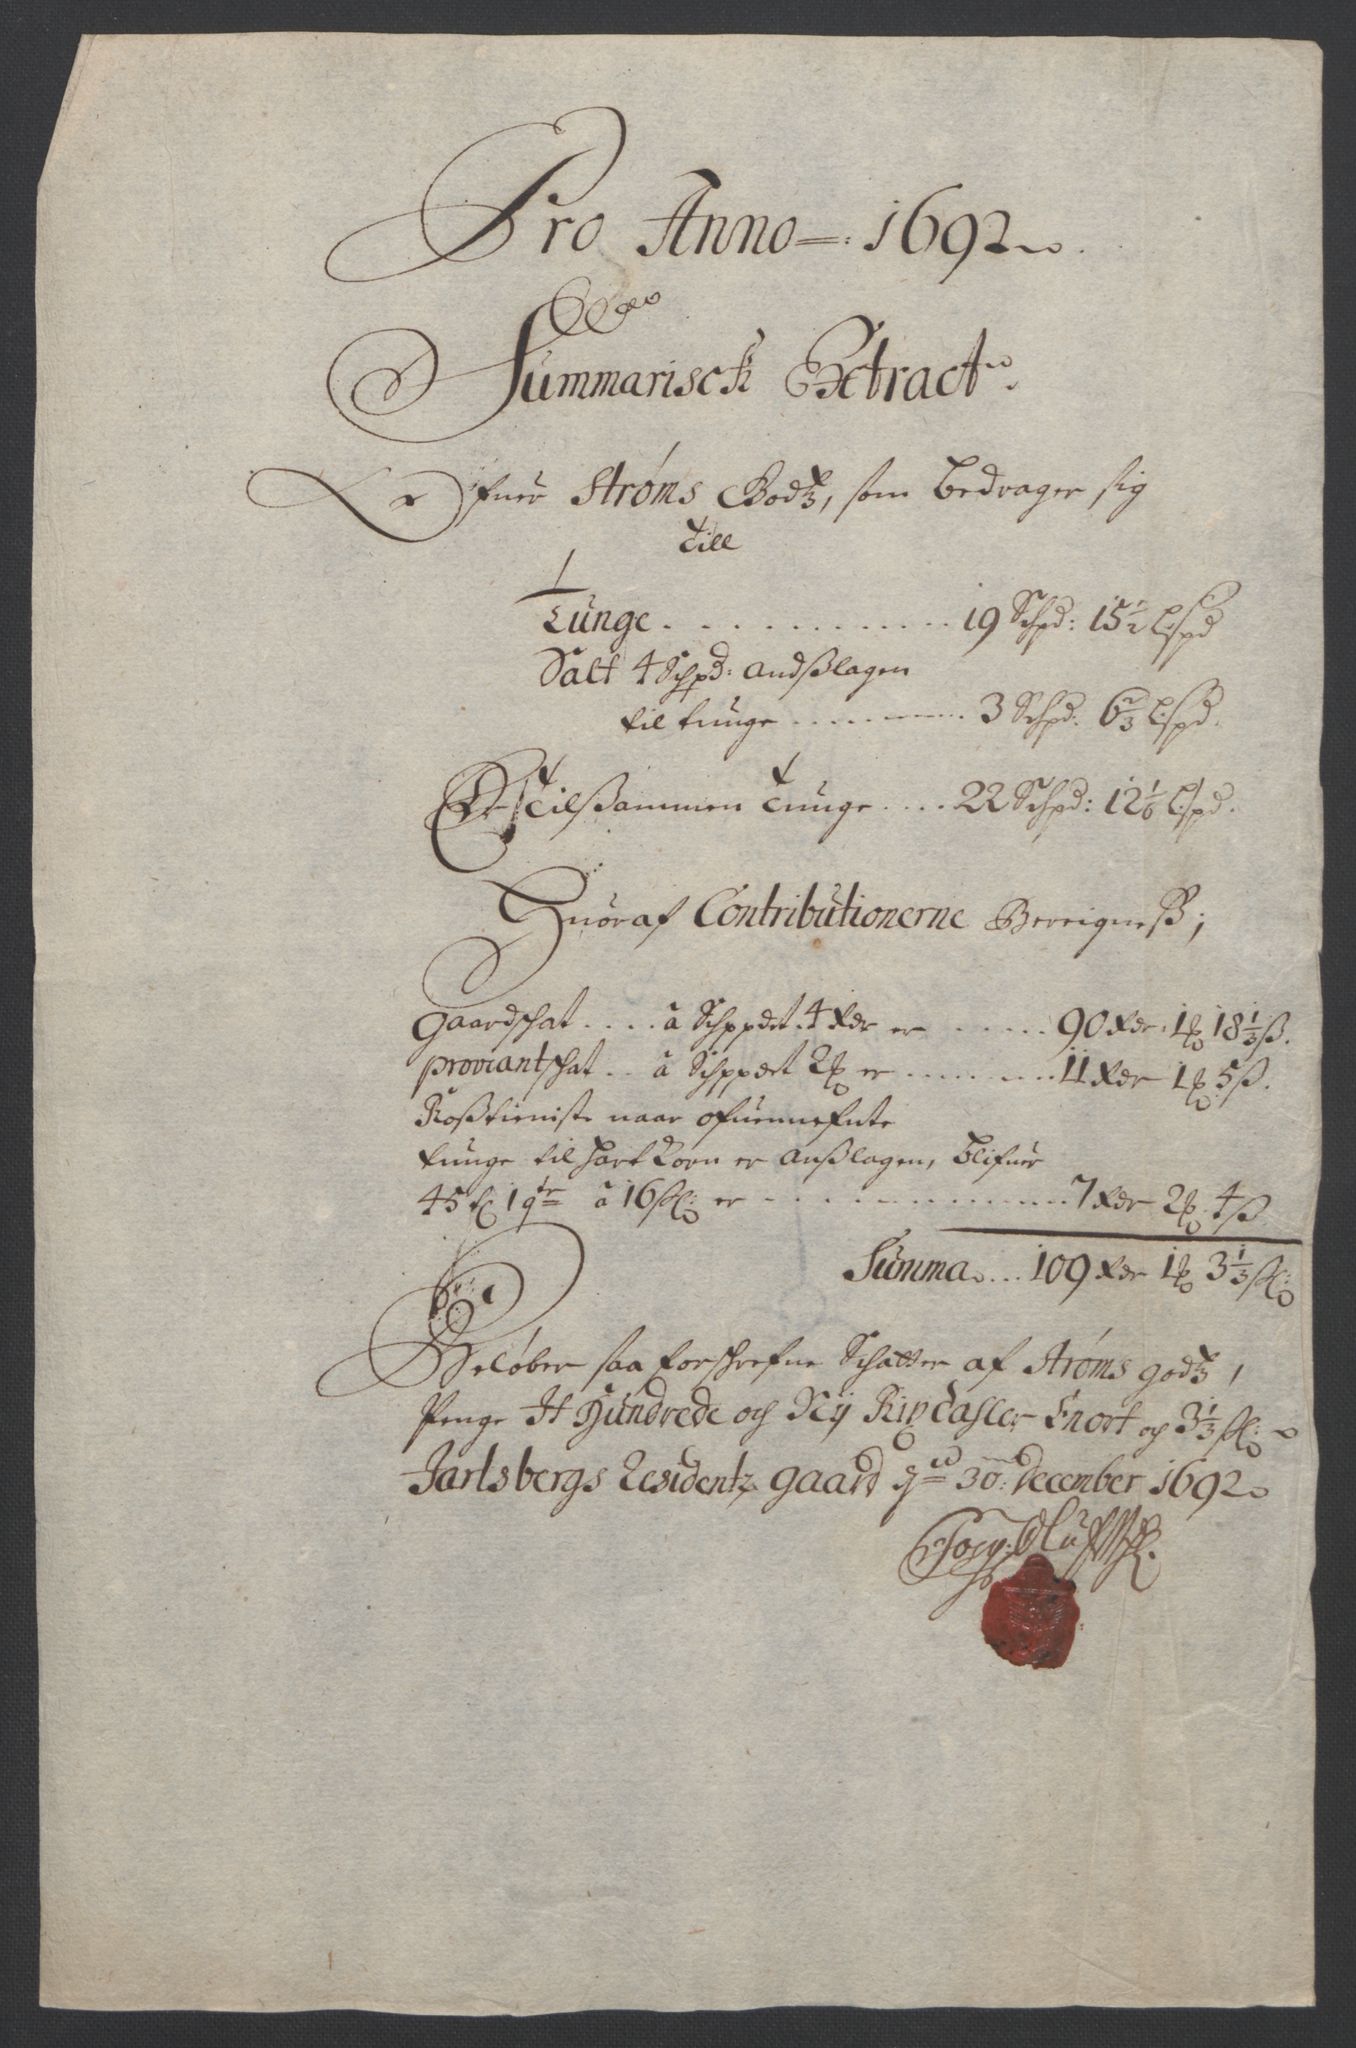 Pro Anno 1692
Summarisch Extract
Ofuer Strøms Godtz, som bedrager sig
till
Tunge . . . . . . . . . . . . 19 Schpd: 15½ Lispd
Salt 4 Schpd: andslagen
til tunge ........... 3 Schpd: 6⅔ Lispd.
Er tilsammen Tunge .... 22 Schpd: 12⅙ Lispd.
Huoraf Contributionerne Bereignes;
Gaardschat .... â Schppdet 4 Rdr er ..... 90 Rdr. 1 ℔ 18⅓ ß.
Proviantschat .. â Schppdet 2 ℔ er ........ 11 Rdr 1 ℔ 5 ß.
Rosstieniste naar ofuennefnte
tunge til hart korn er anslagen, blifuer
45 tr 1 qtr â 16 sk: er ............. 7 Rdr 2 ℔ 4 ß
Summa ... 109 Rdr 1 ℔ 3⅓ sk:
Beløber saa forschrefne Schatter af Strøms godtz,
Penge It Hundrede och Nij Rixdaller Enort och 3⅓ sk:
Jarlsbergs Residentz gaard d 30: December 1692